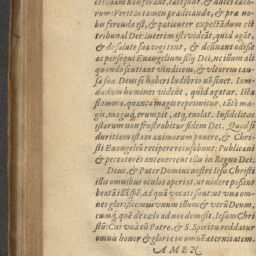 ctrinam non ferant, facessunt, & duces cæco-
rum: Veritas tamen prædicanda, & præ no-
bis ferenda est, & patienter expectandum est
tribunal Dei: interim isti videāt, quid agāt,
& de salute sua cogitent, & desinant odisse
ac persequi Euangelium filij Dei, ne illum ali
quando sentiant vindicem, & vltorem cau-
sæ suæ. Deus se haberi ludibrio nō finet. Iam-
dudum homines vident, quid agatur. Ista
flamma, quanto magis reprimitur, tātò ma-
gis, magisq́; erumpit, atq́; euolat. Infidelitas
istorum non frustrabitur fidem Dei. Quod si
duritiam istam animorum ponere, & Chri-
sti Euangeliū recipere recusabunt: Publicani
& peccatores anteuertent illis in Regno Dei.
Deus, & Pater Domini nostri Iesu Christi
illis omnibus oculos aperiat, vt videre possint
beatā illā spē, ad quā vocati sunt: vt vnà om-
nes glorificemus vnum illum & verū Deum,
eumq́; quē de cælo ad nos demisit, Iesum Chri
stū: Cui vnà cū Patre, & S. Spiritu reddatur
omnis honor & gloria in omnē æternitatem.
AMEN.